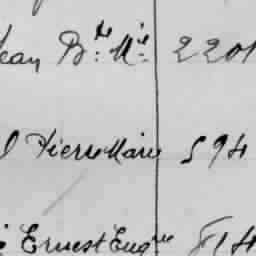 Jean Bte Mie 2201
l Pierre Marie 594
Ernest Eugne 814